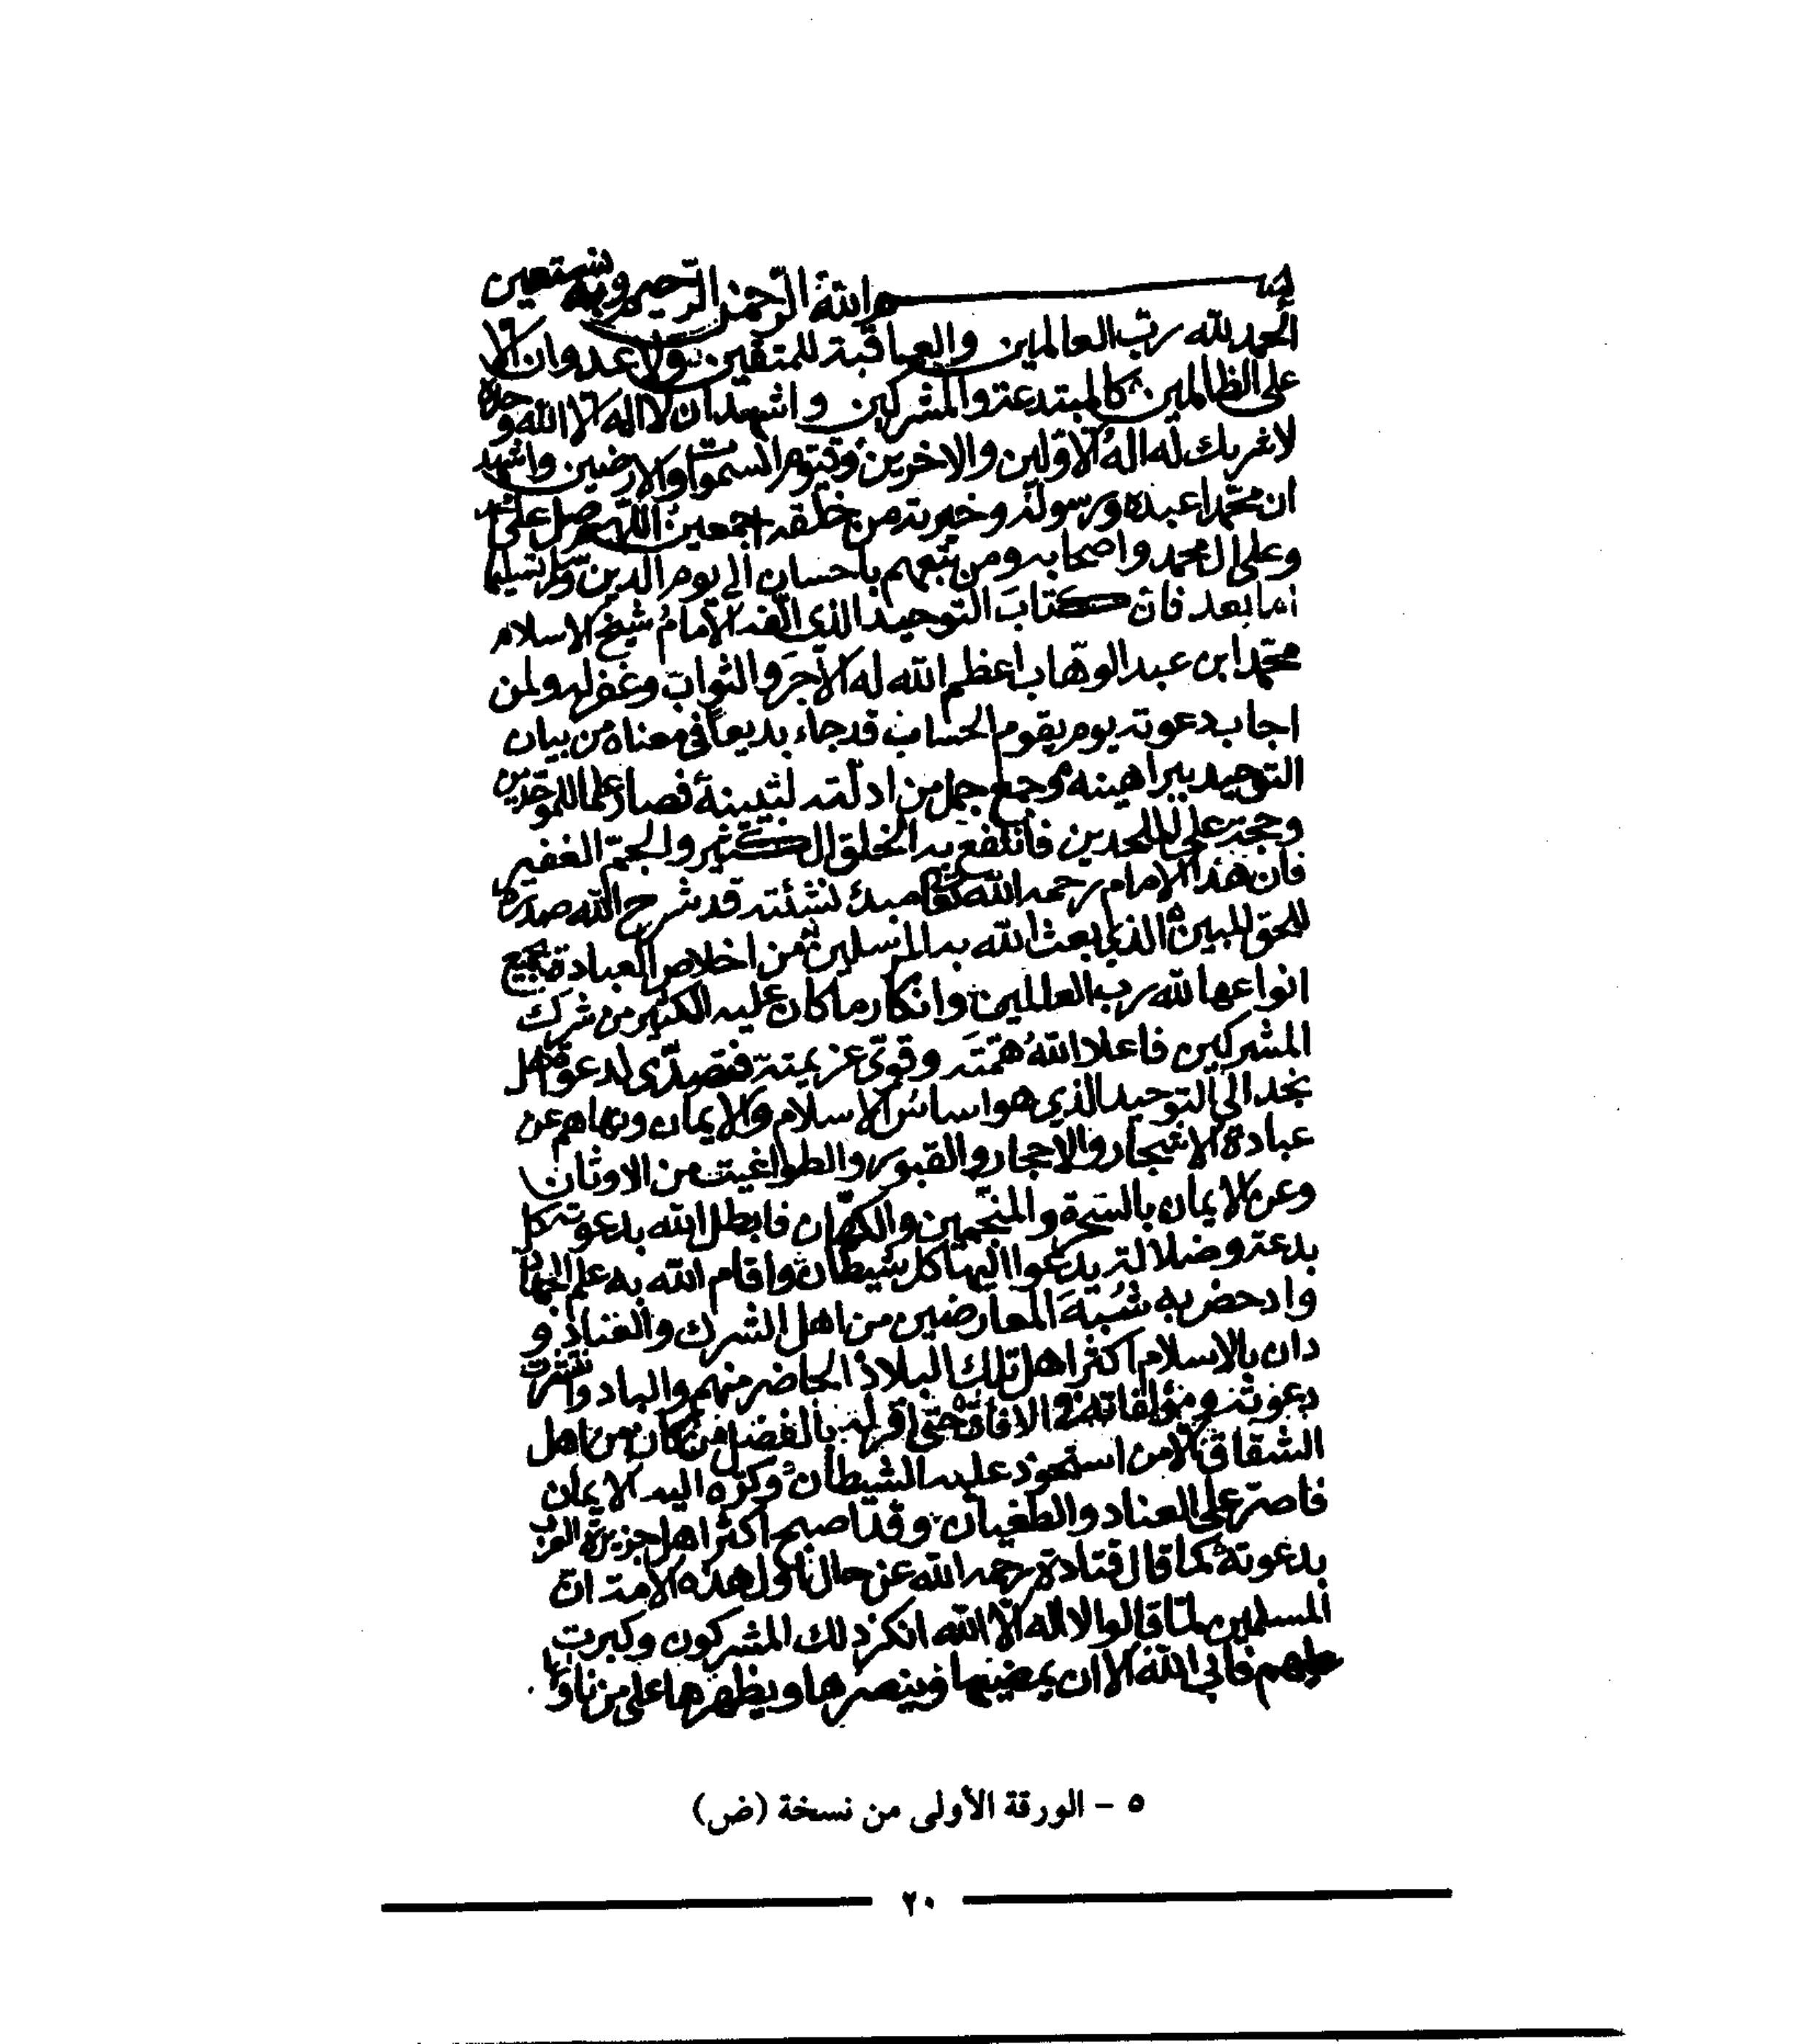 بسم الله الرحمن الرحيم وبه نستعين
الحمد لله رب العالمين والعاقبة للمتقين ولا عدوان الا
على الظالمين كالمبتدعة والمشركين واشهد ان لا اله الا الله وحده
لا شريك له اله الاولين والاخرين وقيوم السموات والارضين واشهد
ان محمدا عبده ورسوله وخيرته من خلقه اجمعين اللهم صل على محمد
وعلى ال محمد واصحابه ومن تبعهم باحسان الى يوم الدين وسلم تسليما
اما بعد فان كتابَ التوحيد الذي الفه الامامُ شيخ الاسلام
محمد ابن عبد الوهاب اعظم الله له الاجرَ والثواب وغفر له ولمن
اجاب دعوته يوم يقوم الحساب قد جاء بديعاً في معناه من بيان
التوحيد ببراهينه وجمع جمل من ادلته لتبيينه فصار علما للموحدين
وحجة على الملحدين فانتفع به الخلق الكثير والجمّ الغفير
فان هذا الامام رحمه الله في مبدئ نشئته قد شرح الله صدره
للحق المبين الذي بعث الله به المرسلين من اخلاص العبادة بجميع
انواعها لله رب العالمين وانكار ما كان عليه الكثير من شرك
المشركين فاعلا اللهُ همّتَه وقوّى عزيمته فتصدّى لدعوة اهل
نجد الى التوحيد الذي هو اساسُ الاسلام والايمان ونهاهم عن
عبادة الاشجار والاحجار والقبور والطواغيت من الاوثان
وعن الايمان بالسحرة والمنجمين والكهّان فابطل الله بدعوته كل
بدعة وضلالة يدعوا اليها كل شيطان واقام الله به علم الجهاد
وادحض به شُبهَ المعارضين من اهل الشرك والعناد و
دان بالاسلام اكثر اهل تلك البلاد الحاضر منهم والباد وانتشرت
دعوته ومؤلفاته في الافاق حتى اقر له بالفضل من كان من اهل
الشقاق الا من استحوذ عليه الشيطان وكره اليه الايمان
فاصر على العناد والطغيان وقد اصبح اكثر اهل جزيرة العرب
بدعوته كما قال قتادة رحمه الله عن حال اول هذه الامة ان
المسلمين لما قالوا لا اله الا الله انكر ذلك المشركون وكبرت
عليهم فابى الله الا ان يمضيها وينصرها ويظهرها على من ناواها
٥ - الورقة الأولى من نسخة (ض)
٢٠